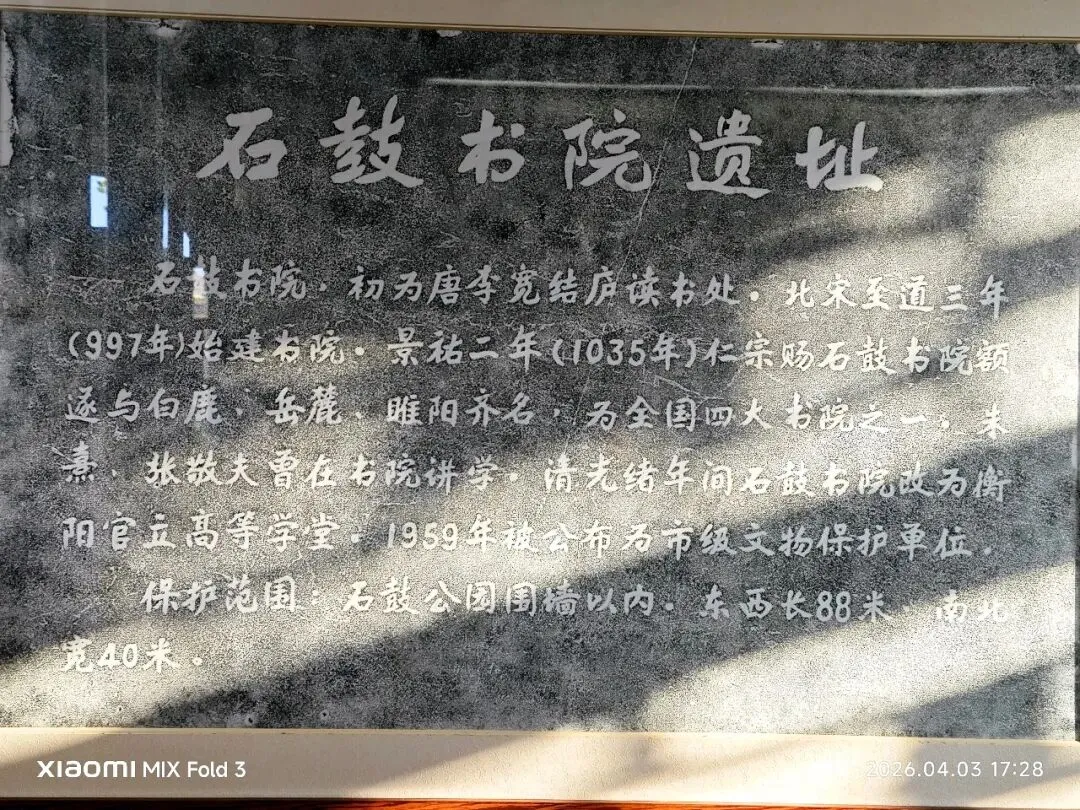 石鼓书院遗址
石鼓书院,初为唐李宽结庐读书处。北宋至道三年
(997年)始建书院。景祐二年(1035年)仁宗赐石鼓书院额
遂与白鹿、岳麓、睢阳齐名,为全国四大书院之一。朱
熹、张敬夫曾在书院讲学。清光绪年间石鼓书院改为衡
阳官立高等学堂。1959年被公布为市级文物保护单位。
保护范围:石鼓公园围墙以内。东西长88米、南北
宽40米。
xiaomi MIX Fold 3
2026.04.03 17:28